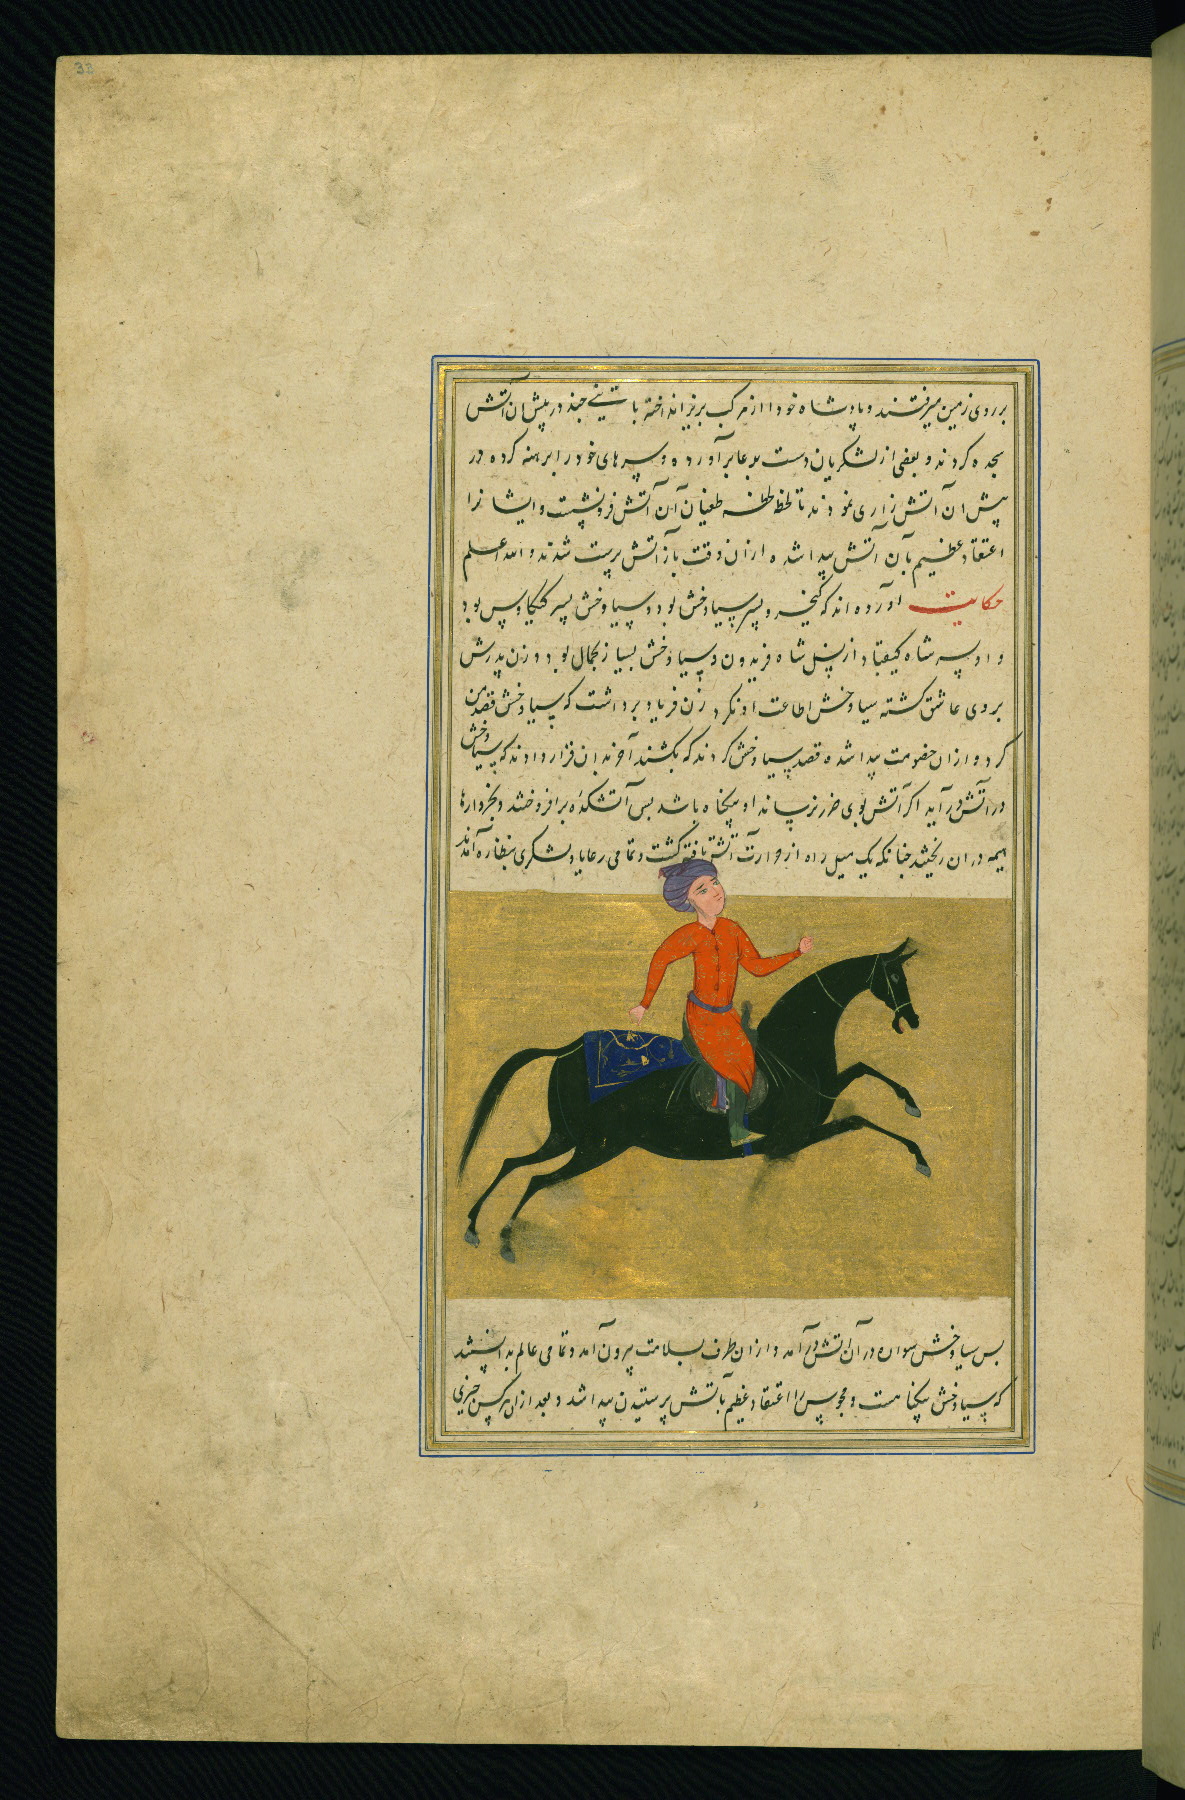 33
بر روی زمین میرفتند و پادشاه خود را از مرکب بزیر انداخته با تنی چند در پیش آن آتش
سجده کردند و بعضی از لشکریان دست بدعا برآورده و سرهای خود را برهنه کرده در
پیش آن آتش زاری نمودند تا لحظه لحظه طغیان آن آتش فرو نشست و ایشانرا
اعتقاد عظیم بآن آتش پیدا شده از آن وقت باز آتش پرست شدند و الله اعلم
حکایت آورده اند که کیخسرو پسر سیاوخش بود و سیاوخش پسر کیکاوس بود
و او پسر شاه کیقباد از نسل شاه فریدون و سیاوخش بسیار بجمال بود و زن پدرش
بروی عاشق گشته سیاوخش اطاعت او نکرد زن فریاد برداشت که سیاوخش قصد من
کرد و از آن خصومت پیدا شده قصد سیاوخش کردند که بکشند آخر بدان قرار دادند که سیاوخش
در آتش در آید اگر آتش بوی ضرر نرساند او بیکناه باشد بس آتشکده برافروختند و بخروارها
هیمه در آن ریختند جنانکه یک میل راه از حرارت آتش تافته گشت و تمامی رعایا و لشکری بنظاره آمدند
بس سیاوخش سواره در آن آتش در آمد و از آن طرف بسلامت بیرون آمد و تمامی عالم بدانستند
که سیاوخش بیکناهست و مجوس را اعتقاد عظیم بآتش پرستیدن پیدا شد و بعد از آن هرکس جیزی